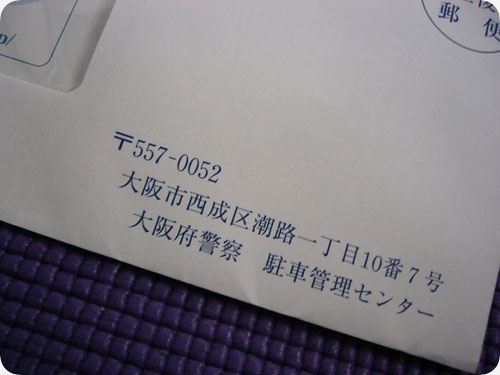 郵便
〒557-0052
大阪市西成区潮路一丁目10番7号
大阪府警察 駐車管理センター